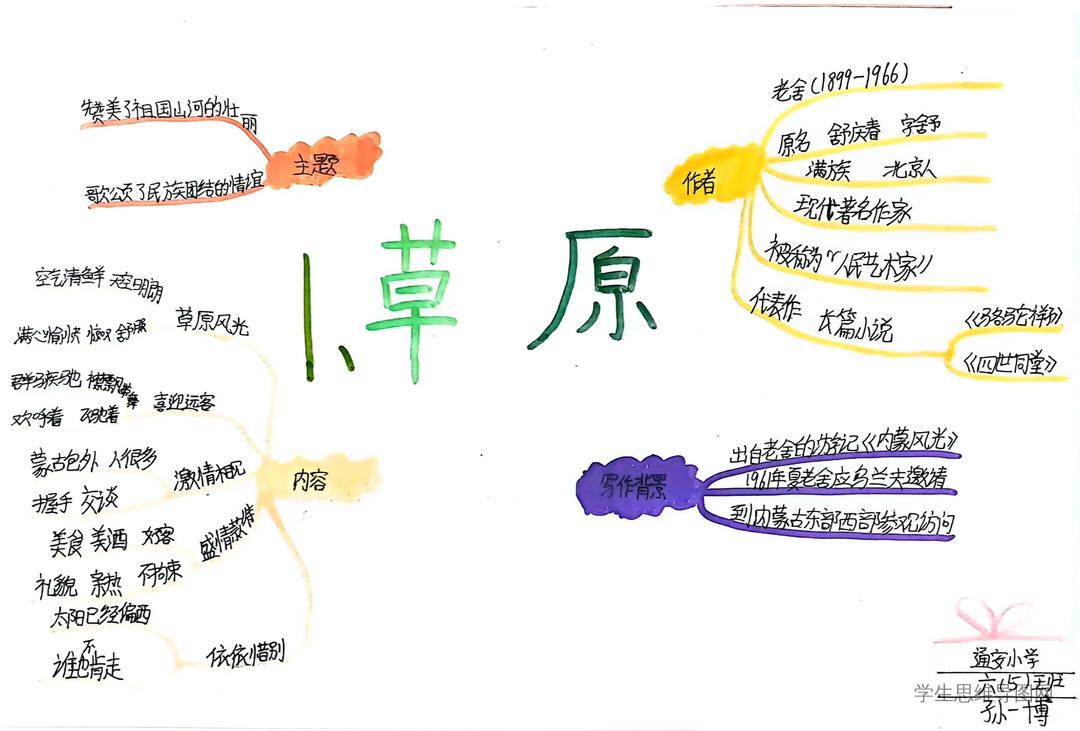 草原
主题
赞美了祖国山河的壮丽
歌公页了民族团结的情谊
作者
老舍(1899-1966)
原名 舒庆春 字舍予
满族 北京人
现代著名作家
被称为“人民艺术家》
代表作 长篇小说
《骆驼祥子》
《四世同堂》
写作背景
出自老舍的访学记《内蒙风光》
1961年夏老舍应乌兰夫邀请
到内蒙古东部西部参观访问
内容
草原风光
空气清鲜 天空明朗
满心愉快 惊叹 舒服
喜迎远客
群马疾驰 襟飘带舞
欢呼着
激情相见
蒙古包外 人很多
握手 交谈
盛情款待
美食 美酒 好客
礼貌 亲热 不拘束
依依惜别
太阳已经偏西
谁也不肯走
通安小学
六(5)班
孙一博
学生思维导图网